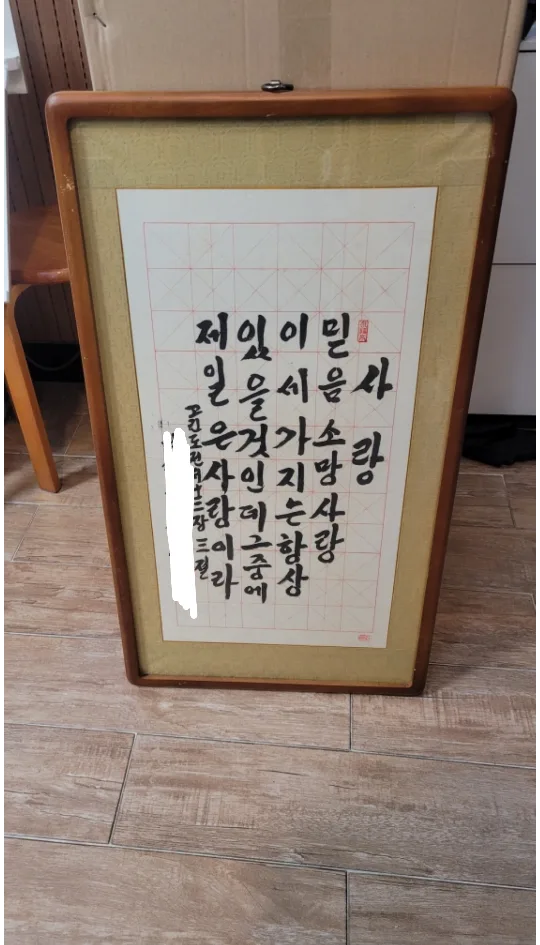 사랑
믿음소망사랑
이세가지는항상
있을것인데그중에
제일은사랑이라
고린도전서十三장 三절